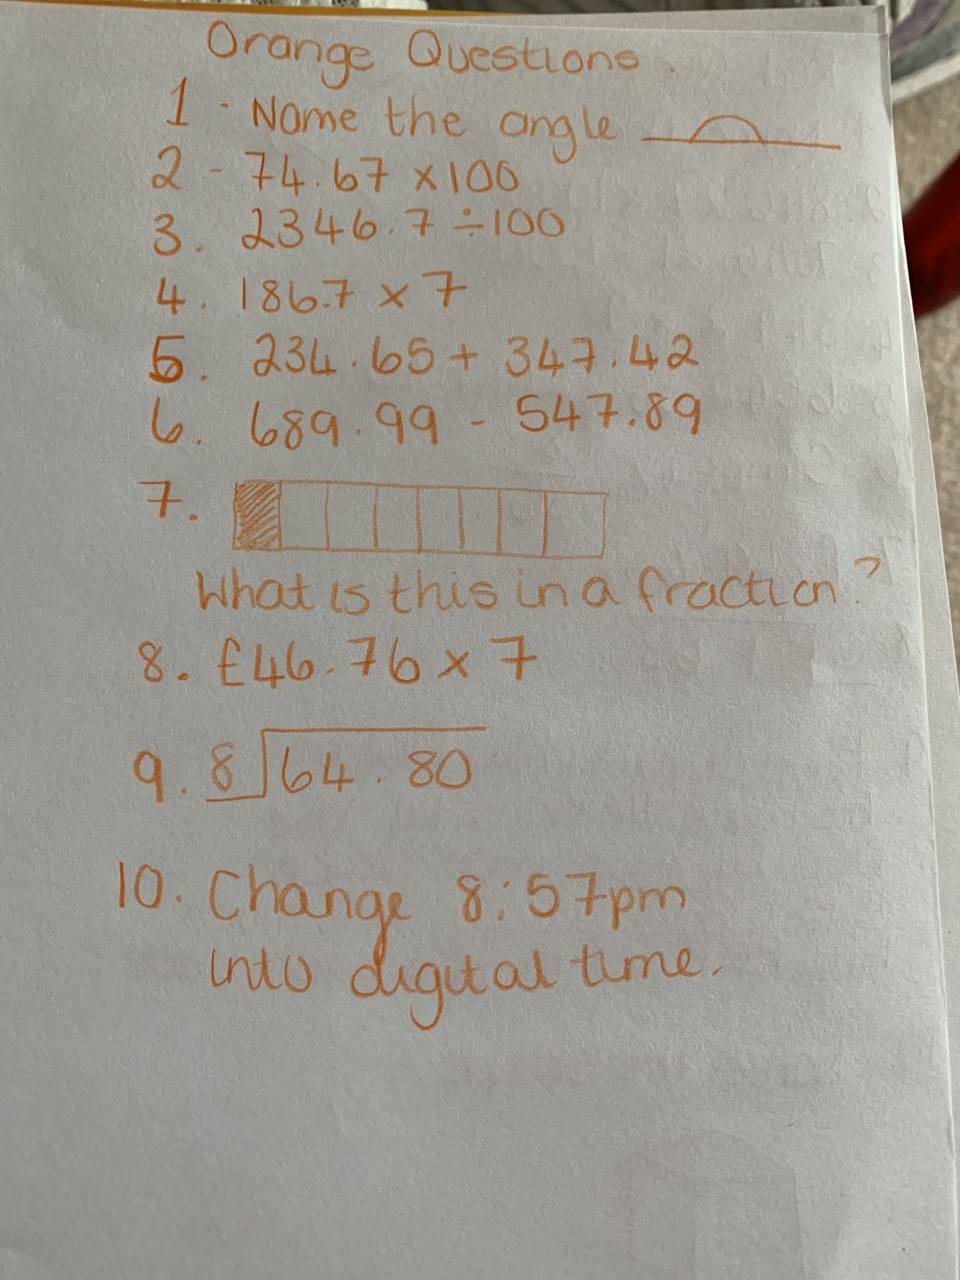 Orange Questions.
1 - Name the angle
2 - 74.67 x 100
3. 2346.7 ÷ 100
4. 186.7 x 7
5. 234.65 + 347.42
6. 689.99 - 547.89
7.
What is this in a fraction?
8. £46.76 x 7
9. 8 64.80
10. Change 8:57pm
into digital time.